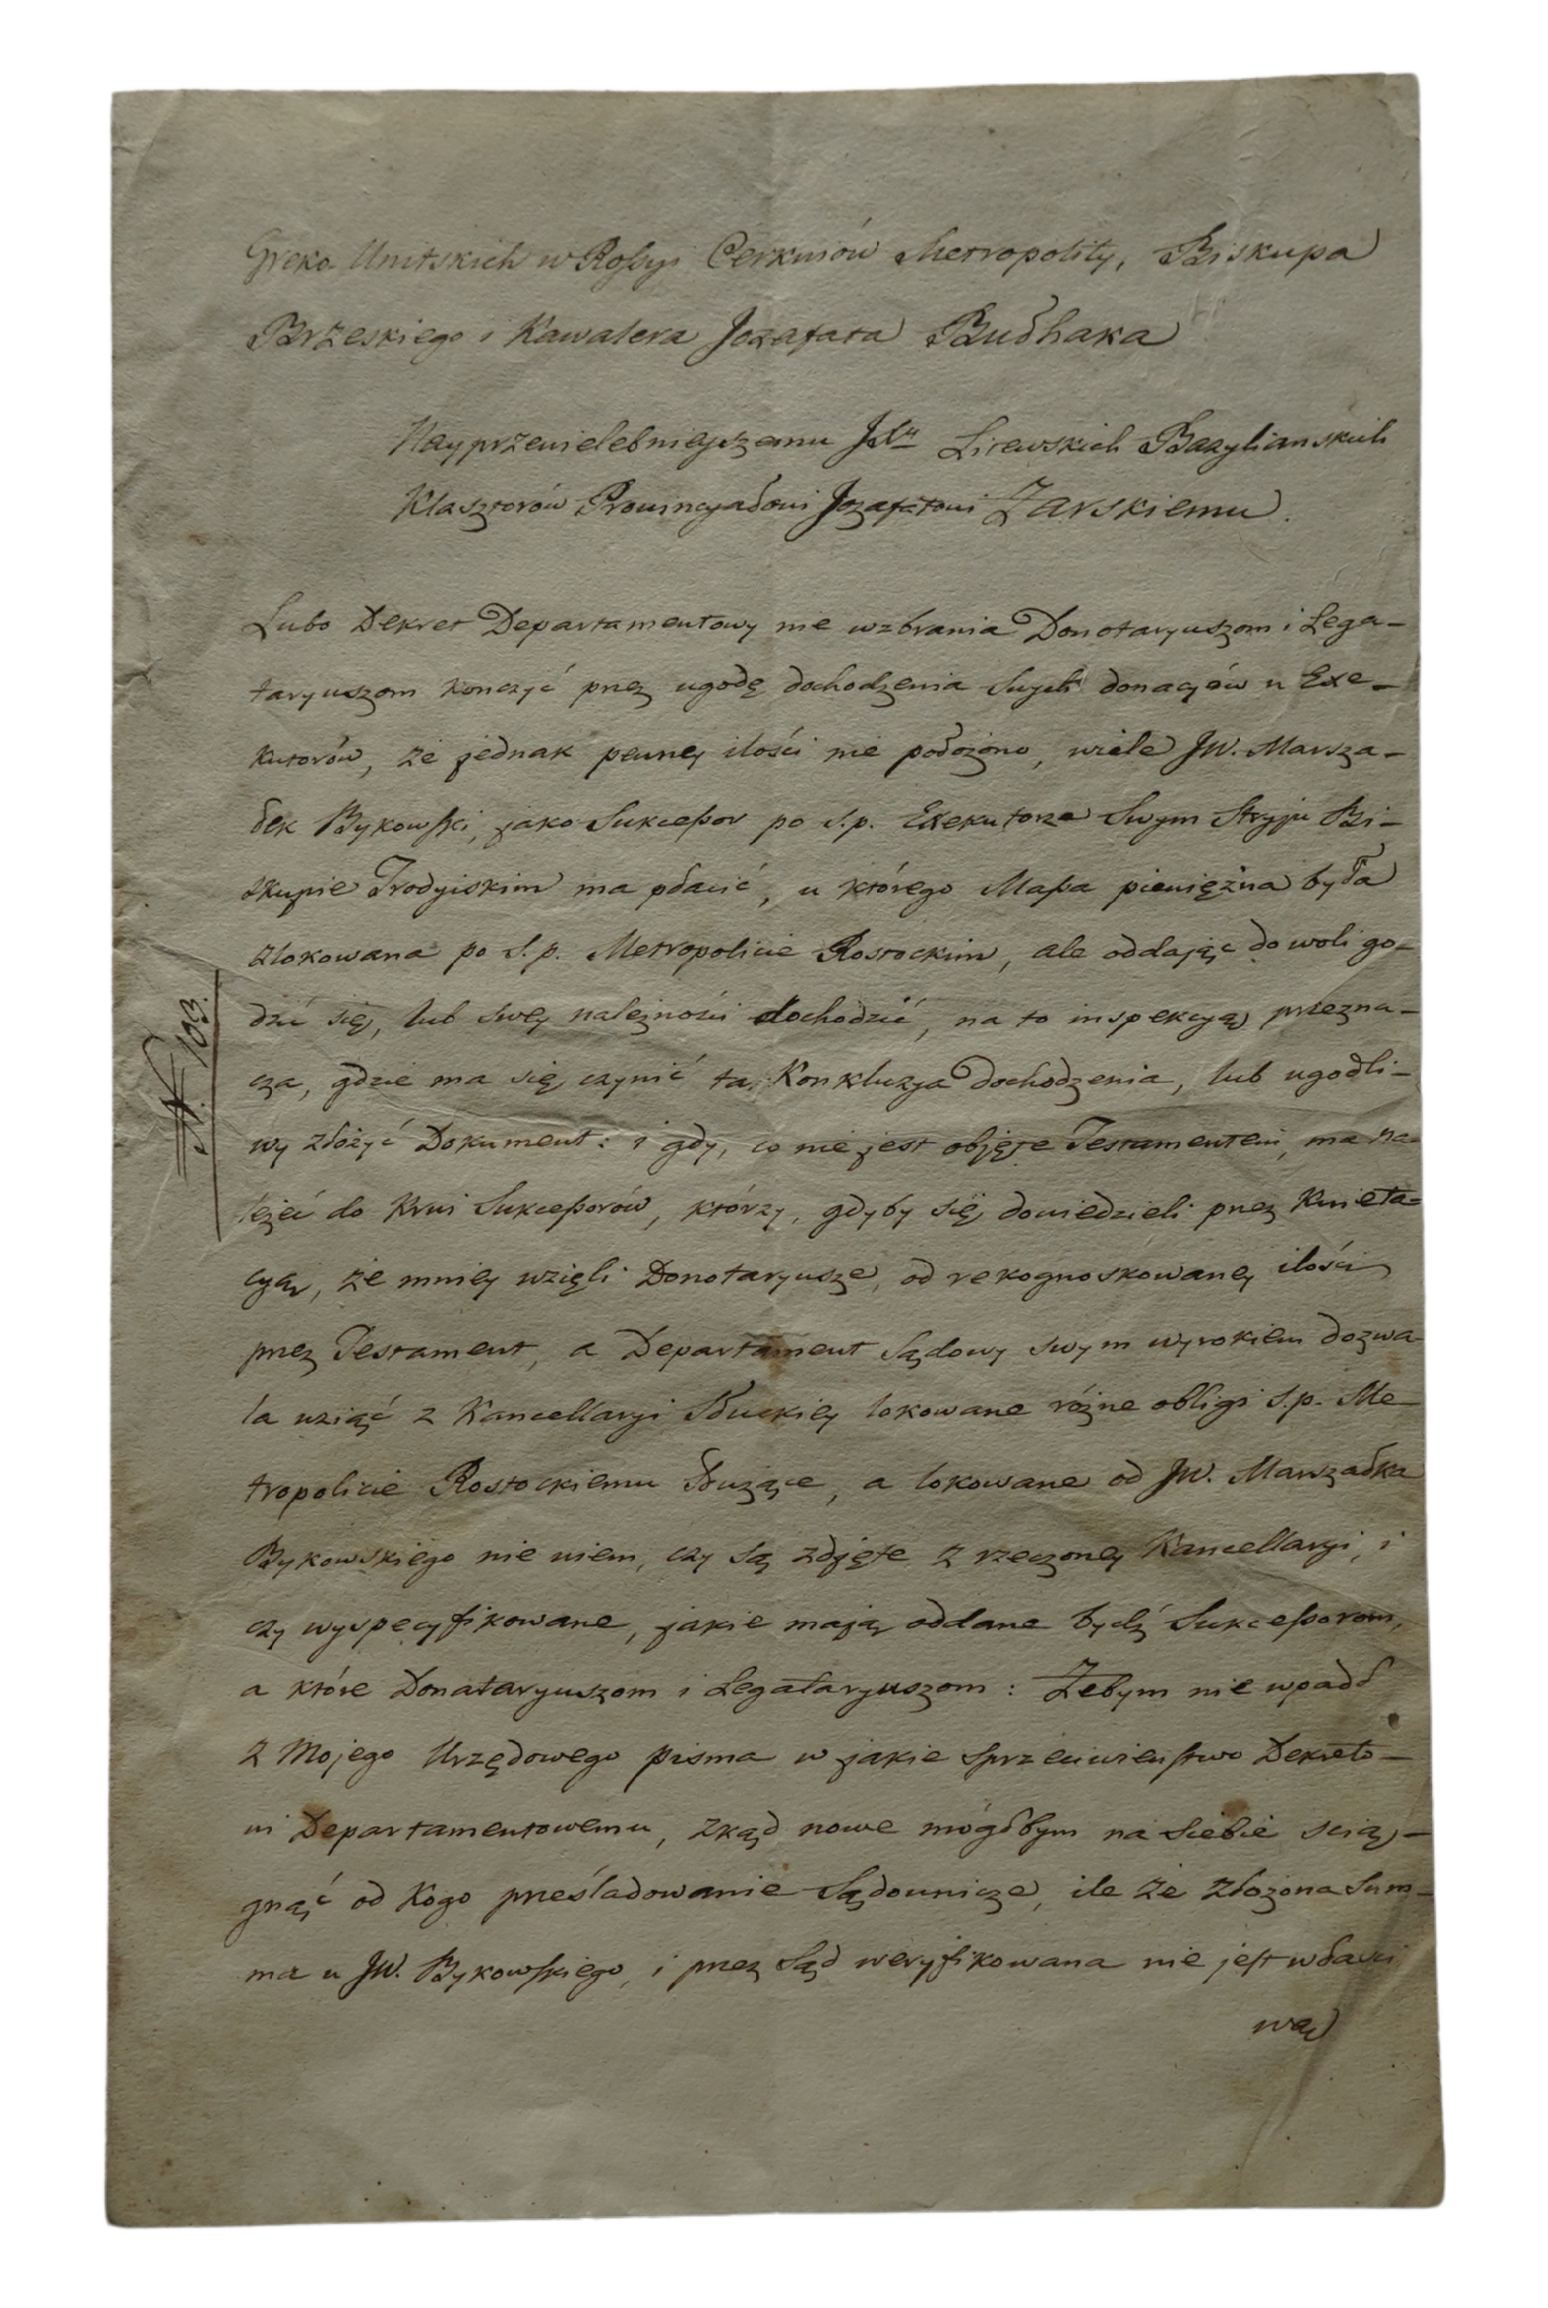 Greko Unitskich w Rossyi Cerkwiów Metropolity, Biskupa
Brzeskiego i Kawalera Jozafata Bułhaka
Nayprzewielebnieyszemu JX<sup>u</sup> Litewskich Bazylianskich
Klasztorów Prowincyałowi Jozafatowi Żarskiemu.
Lubo Dekret Departamentowy nie wzbrania Donotaryuszom i Lega-
taryuszom konczyć przez ugodę dochodzenia Swych donacyów u Exe-
kutorów, że jednak pewney ilości nie położono, wiele JW. Marsza-
łek Bykowski, jako Sukcessor po s.p. Exekutorze Swym Stryju Bi-
skupie Trodyiskim ma płacić, u którego Massa pieniężna była
zlokowana po S.p. Metropolicie Rostockim, ale oddając do woli go-
dzić się, lub swey należności dochodzić, na to inspekcyą przezna-
cza, gdzie ma się czynić ta Konkluzya dochodzenia, lub ugodli-
wy złożyć Dokument: i gdy, co nie jest objęte Testamentem, ma na-
leżeć do Krwi Sukcessorów, którzy, gdyby się dowiedzieli przez Kwieta-
cyą, że mniey wzięli Donotaryusze, od rekognoskowaney ilości
przez Testament, a Departament Sądowy swym wyrokiem dozwa-
la wziąć z Kancellaryi Słuckiey lokowane różne obligi S.p. Me-
tropolicie Rostockiemu służące, a lokowane od JW. Marszałka
Bykowskiego nie wiem, czy są zdjęte z rzeczoney Kancellaryi, i
czy wyspecyfikowane, jakie mają oddane bydź Sukcessorom,
a które Donataryuszom i Legataryuszom: Żebym nie wpadł
z Mojego Urzędowego pisma w jakie Sprzeciwieństwo Dekreto-
wi Departamentowemu, zkąd nowe mógłbym na siebie scią-
gnąć od Kogo prześladowanie Sądownicze, ile że złożona Sum-
ma u JW. Bykowskiego, i przez Sąd weryfikowana nie jest własci
wą
N. 103.